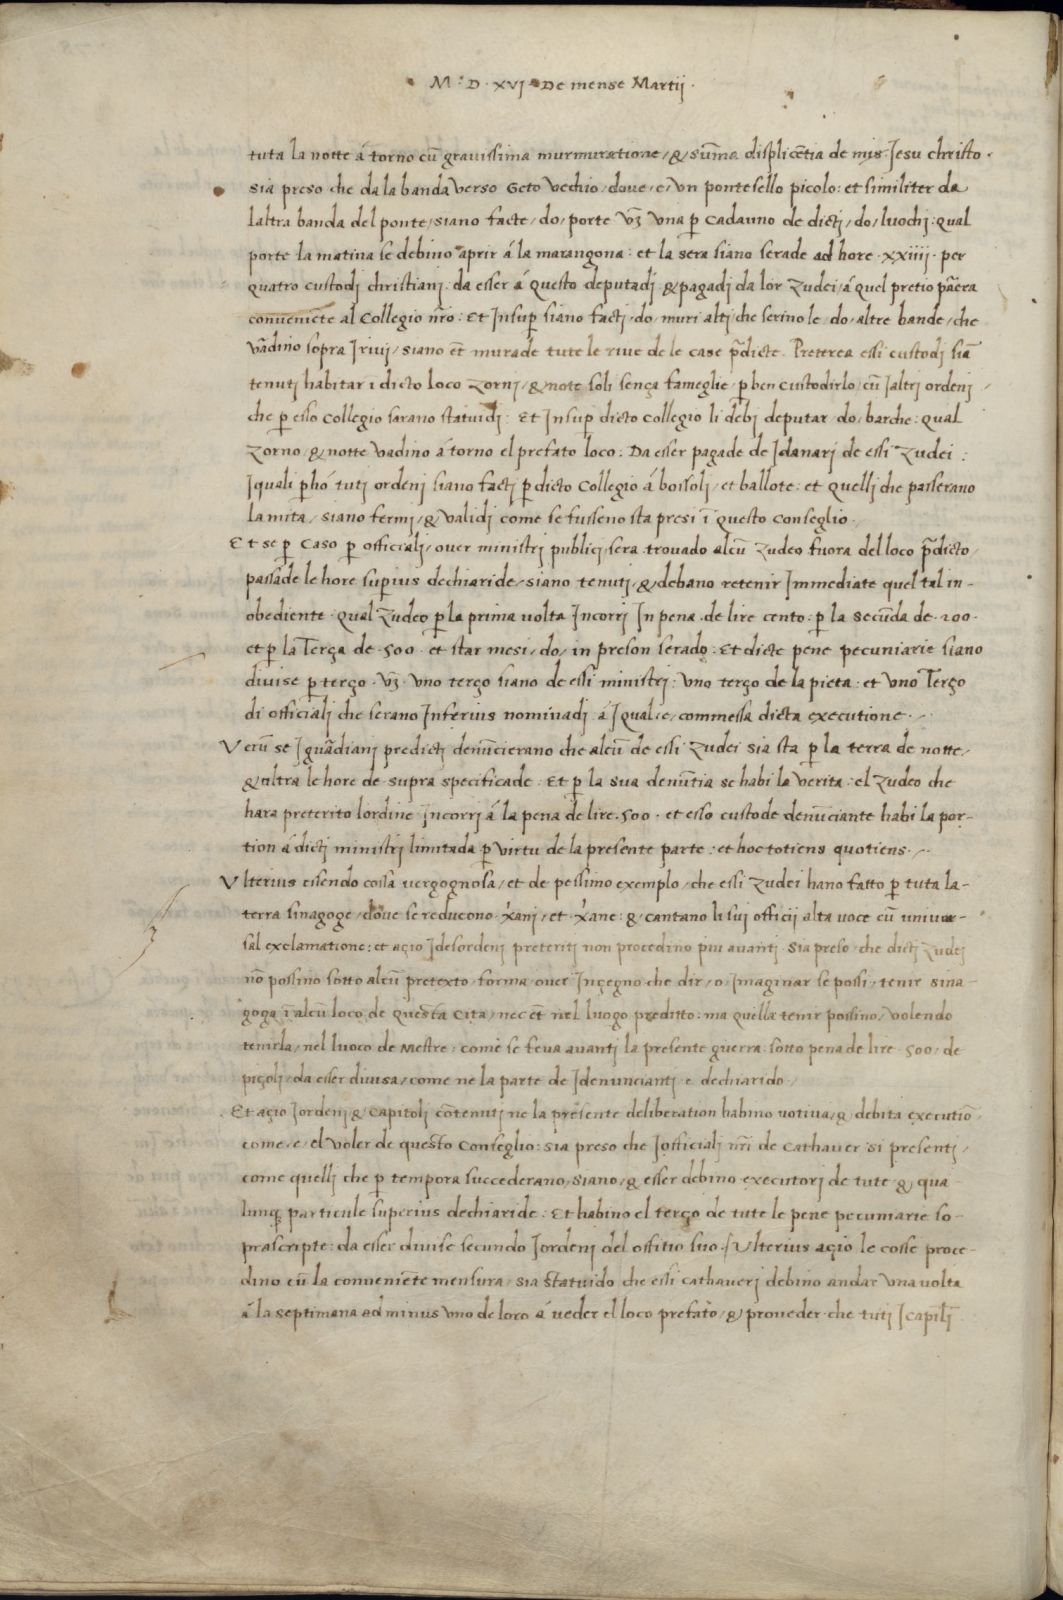 M · D · XVJ · De mense Martij ·
tuta la notte á torno cũ gravissima murmuratione / & sum̃a displicẽtia de mis Jesu christo ·
sia preso che da la banda verso Geto vechio / dove / e / un pontesello picolo : et similiter da
laltra banda del ponte / siano facte / do / porte vȝ una ꝑ cadauno de dictj / do / luochj : qual
porte la matina se debino aprir á la marangona : et la sera siano serade ad hore · xxiiij · per
quatro custodj christianj · da esser á questo deputadj · & pagadj da lor Zudei / á quel pretio parera
conveniẽte al Collegio nr̃o : Et Insuꝑ siano factj / do / muri alti che serino le / do / altre bande / che
vãdino sopra J rivij / siano et̃ murade tute le rive de le case p̃dicte . Preterea essi custodj siã
tenuti habitar ĩ dicto loco Zornj / & note soli sença fameglie / ꝑ ben custodirlo / cũ J altri ordenj /
che ꝑ esso Collegio sarano statuidj : Et Insuꝑ dicto Collegio li debj deputar / do / barche : qual
Zorno / & notte vadino á torno el prefato loco : Da esser pagade de J danarj de essi Zudei :
J quali ꝑhó tuti ordenj siano factj ꝑ dicto Collegio á bossolj / et ballote : et quellj che passerano
la mita / siano fermj / & validj come se fusseno sta presi ĩ questo Conseglio .
Et se ꝑ caso ꝑ officialj / over ministrj publicj sera trovado alcũ Zudeo fuora del loco p̃dicto /
passade le hore suꝑius dechiaride / siano tenutj / & debano retenir Immediate quel tal in-
obediente · qual Zudeo ꝑ la prima volta Incorrj In pena de lire cento : ꝑ la secũda de · 200 ·
et ꝑ la Terça de · 500 · et star mesi / do / in preson serado : Et dicte pene pecuniarie siano
divise ꝑ terço · vȝ · uno terço siano de essi ministrj : uno terço de la pieta : et uno Terço
di officialj che serano Inferius nominadj á J qual / e / commessa dicta executione · /·
Verũ se J guãdianj predictj denũcierano che alcũ de essi Zudei sia sta ꝑ la terra de notte /
& ultra le hore de supra specificade : Et ꝑ la sua denũtia se habi la verita : el Zudeo che
hara preterito lordine Incorrj á la pena de lire · 500 · et esso custode denũciante habi la por-
tion á dictj ministrj limitada ꝑ virtu de la presente parte : et hoc totiens quotiens · /·
Ulterius essendo cossa vergognosa / et de pessimo exemplo / che essi Zudei hano fatto ꝑ tuta la-
terra sinagoge / dove se reducono · x̃anj / et · x̃ane : & cantano li sui officii alta voce cũ univer-
sal exclamatione : et açio J desordenj preteritj non procedino piu avanti · sia preso · che dictj Zudej
nõ possino sotto alcũ pretexto / forma / over Inçegno che dir / o / Imaginar se possi / tenir sina
goga ĩ alcũ loco de questa cita / nec et̃ nel luogo preditto : ma quella tenir possino / volendo
tenirla / nel luoco de Mestre : come se feva avanti la presente guerra · sotto pena de lire · 500 / de
piçolj / da esser divisa / come ne la parte de J denunciantj · e · dechiarido /
Et açio J ordenj / & Capitolj cõtenuti ne la presente deliberation habino votiva / & debita executiõ
come / e / el voler de questo Conseglio : sia preso che J officialj nr̃i de Cathaver si presentj /
come quellj che ꝑ tempora succederano / siano / & esser debino executorj de tute & qua-
lunqȝ particule superius dechiaride : Et habino el terço de tute le pene pecuniarie so-
prascripte : da esser divise secundo J ordenj del offitio suo · / Ulterius açio le cosse proce-
dino cũ la conveniẽte mensura / sia statuido che essi cathaverj debino andar una volta
á la septimana ad minus uno de loro á veder el loco prefato / & proveder che tuti J capitlj̃